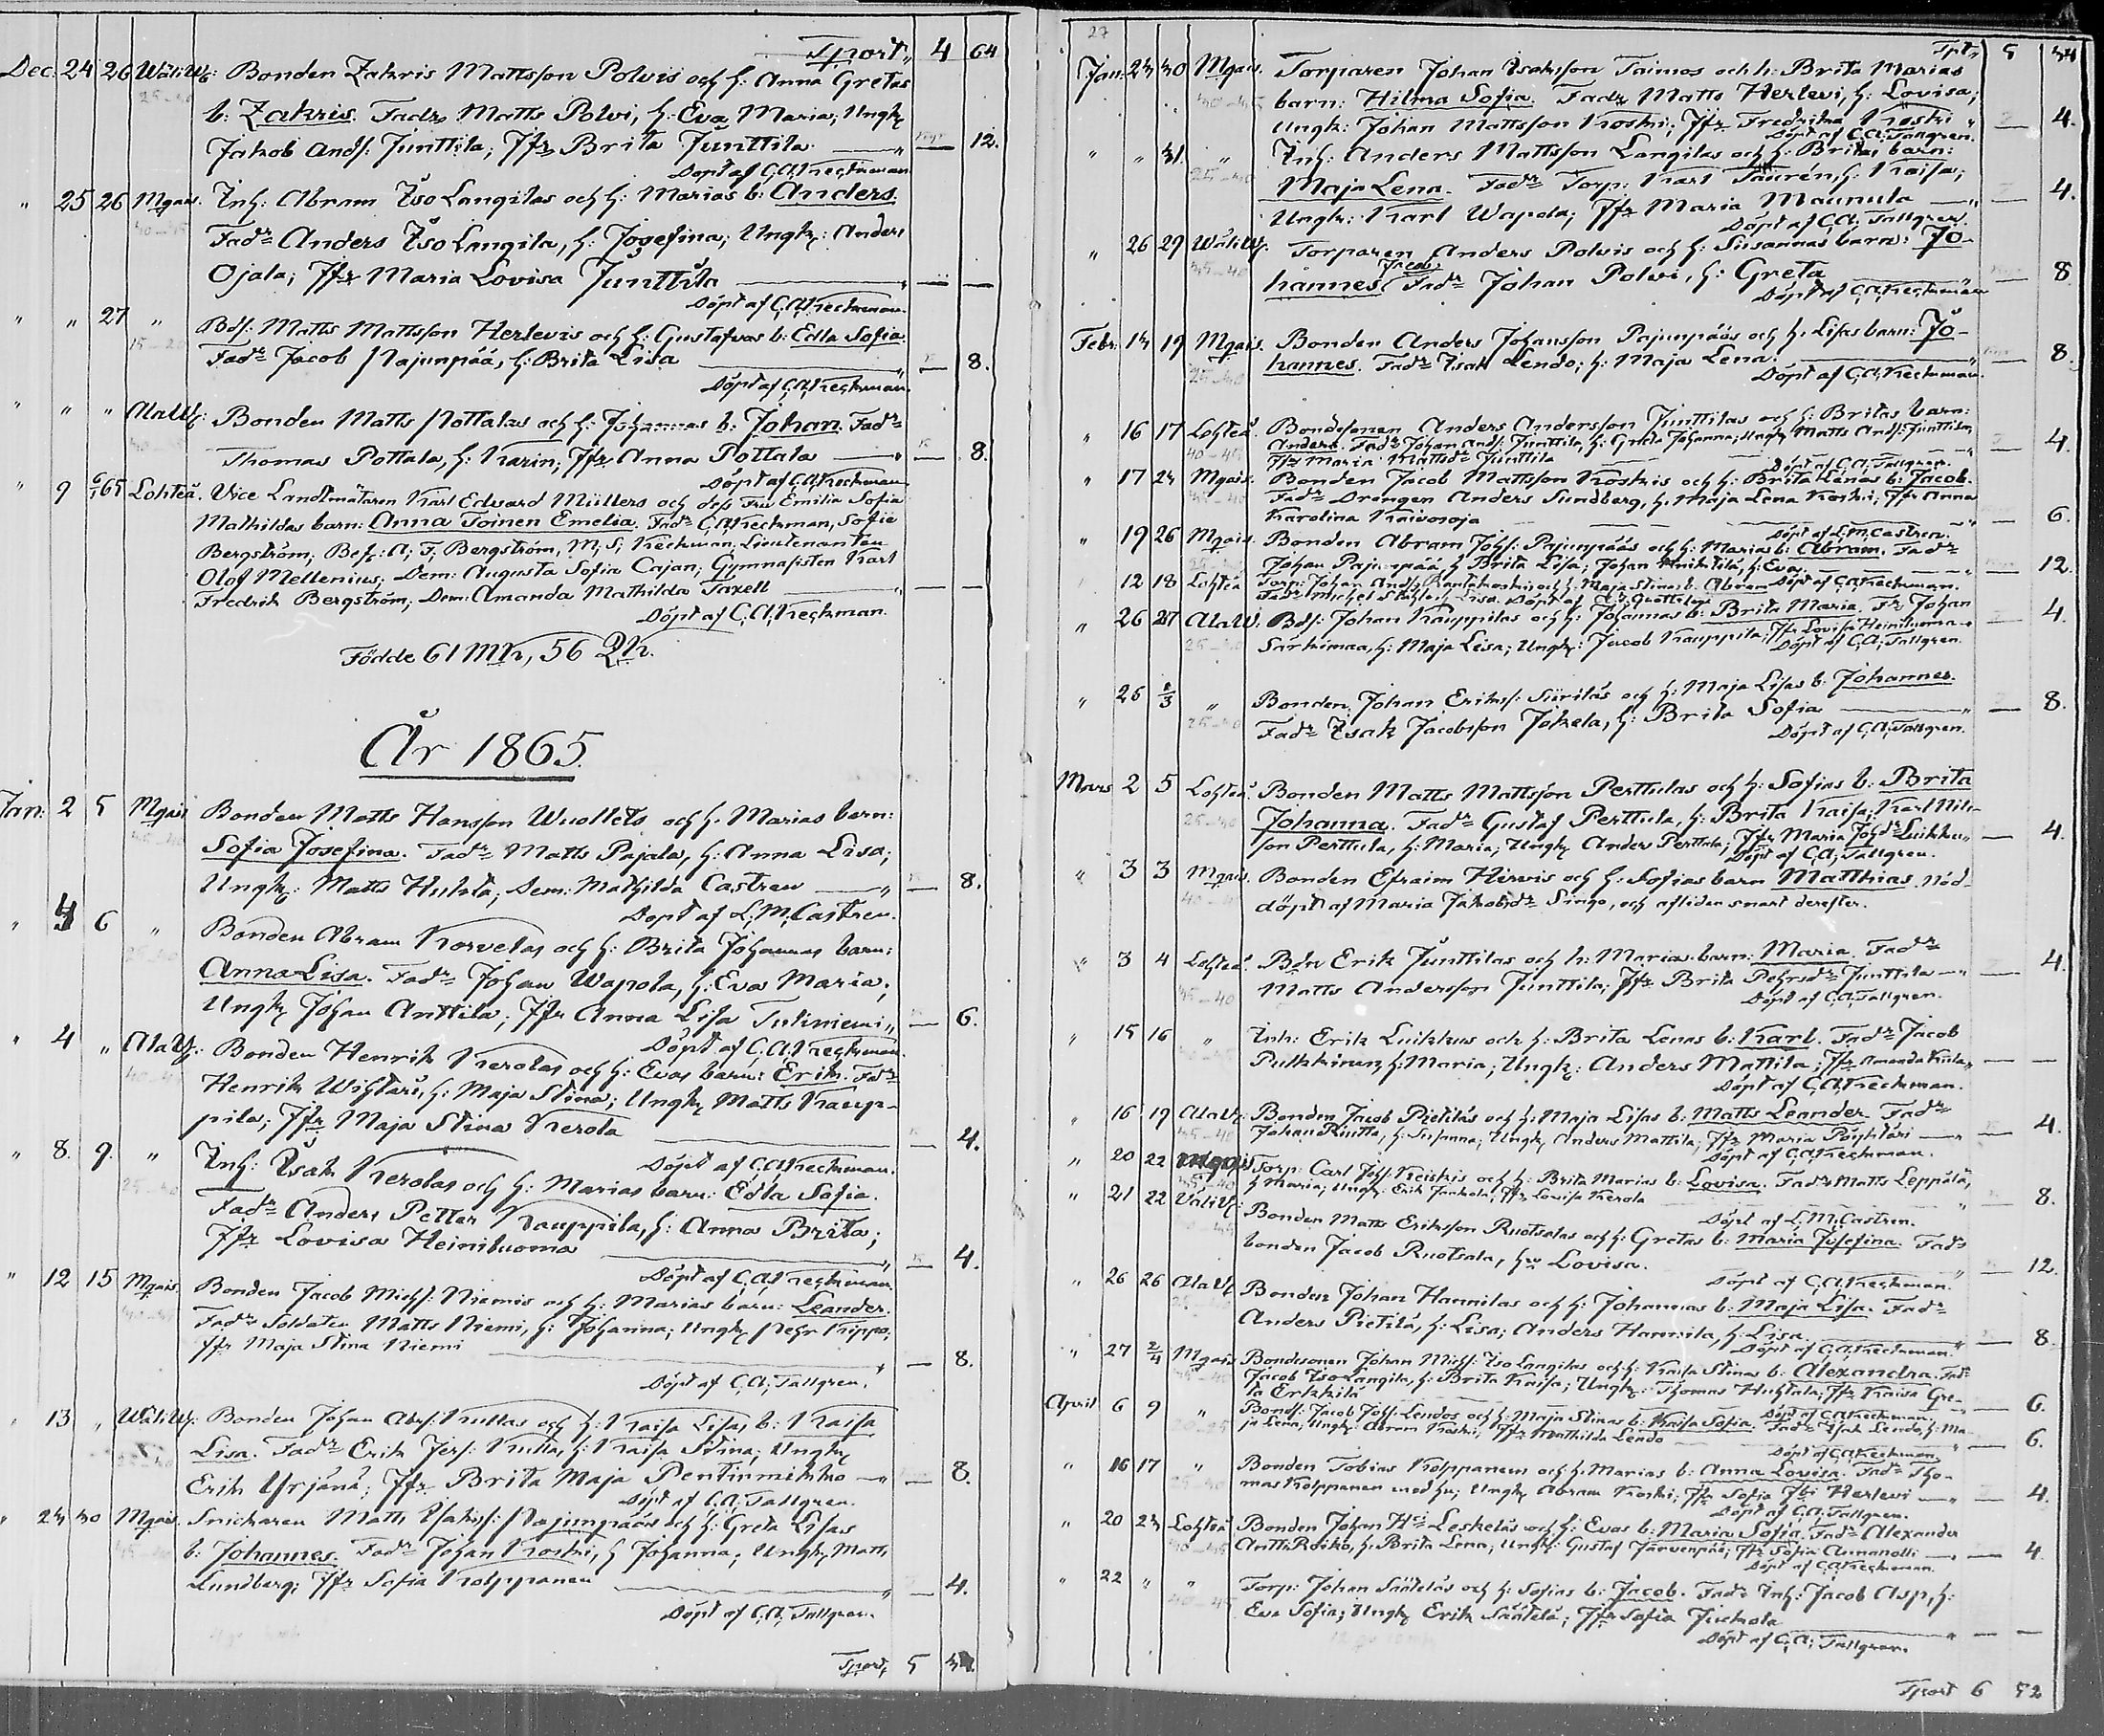 Tport 4 64
Dec. 24 26 Wäliw: Bonden Zakris Mattsson Polvis och h: Anna Gretas
b: Zakris. Fadr Matts Polvi, h: Eva Maria; Ungk
Jakob Ands: Junttila; Jfr Brita Junttila — 12.
Döpt af C.A. Keckman.
" 25 26 Mgais. Inh: Abram Iso Langilas och h: Marias b: Anders.
Fadr Anders Iso Langila, h: Josefina; Ungk: Anders
Ojala; Jfr Maria Lovisa Junttila —
Döpt af C.A. Keckman.
" " 27 " Bds: Matts Mattsson Herlevis och h: Gustafvas b: Edla Sofia.
Fadr Jacob Pajunpää, h: Brita Lisa — 8.
Döpt af C.A. Keckman.
" " " AlaW: Bonden Matts Pottalas och h: Johannas b: Johan. Fadr
Thomas Pottala, h: Karin; Jfr Anna Pottala — 8.
Döpt af C.A. Keckman
" 9 6/1 65 Lohteå. Vice Landtmätaren Karl Edvard Müllers och dess Fru Emilia Sofia
Mathildas barn: Anna Toinen Emelia. Fadr C.A. Keckman, Sofie
Bergström; Bef: A; F; Bergström, M; S; Keckman, Lieutenanten
Olof Mellenius; Dem: Augusta Sofia Cajan; Gymnasisten Karl
Fredrik Bergström; Dem: Amanda Mathilda Taxell —
Döpt af C; A; Keckman.
Födde 61 Mk, 56 Qk.
År 1865.
Jan: 2 5 Mgais Bonden Matts Hansson Wuollets och h. Marias barn:
Sofia Josefina. Fadr Matts Pajala, h: Anna Lisa;
Ungk: Matts Huhta; Dem: Mathilda Castren — 8.
Döpt af L; M; Castren.
" 4 6 " Bonden Abram Korvelas och h: Brita Johannas barn:
Anna Lisa. Fadr Johan Wapola, h: Eva Maria;
Ungk Johan Anttila; Jfr Anna Lisa Tuliniemi — 6.
Döpt af C.A. Keckman.
" 4 " AlaW: Bonden Henrik Kerolas och h: Evas barn: Erik. Fadr
Henrik Wihtari, h: Maja Stina; Ungk Matts Kaup-
pila; Jfr Maja Stina Kerola — 4.
Döpt af C.A. Keckman.
" 8. 9. " Inh: Isak Kerolas och h: Marias barn: Edla Sofia.
Fadr Anders Petter Kauppila, h: Anna Brita;
Jfr Lovisa Heiniluoma — 4.
Döpt af C.A. Keckman.
" 12 15 Mgais Bonden Jacob Michs: Niemis och h: Marias barn: Leander.
Fadr Soldaten Matts Niemi, h: Johanna; Ungk Pehr Krippo;
Jfr Maja Stina Niemi — 8.
Döpt af C; A; Tallgren.
" 13 " WäliW: Bonden Johan Abrs: Kultas och h: Kaisa Lisas, b: Kaisa
Lisa. Fadr Erik Jers: Kulla, h: Kaisa Stina; Ungk
Erik Yrjänä; Jfr Brita Maja Pentinmikko — 8.
Döpt af C; A; Tallgren.
" 23 30 Mgais. Snickaren Matts Isaks: Pajunpääs och h: Greta Lisas
b: Johannes. Fadr Johan Koski, h: Johanna; Ungk Matts
Lundberg; Jfr Sofia Kolppanen — 4.
Döpt af C; A; Tallgren.
Tport 5
27
Tpt 5 34
Jan: 23 30 Mgais. Torparen Johan Isaksson Taimos och h: Brita Marias
barn: Hilma Sofia. Fadr Matts Herlevi, h: Lovisa;
Ungk: Johan Mattsson Koski; Jfr Fredrika Koski — 4.
Döpt af C; A; Tallgren.
" " 31. " Inh: Anders Mattsson Langilas och h: Britas barn:
Maja Lena. Fadr Torp: Karl Tauren, h: Kaisa;
Ungk: Karl Wapola; Jfr Maria Maunula — 4.
Döpt af C; A; Tallgren.
" 26 29 WäliW. Torparen Anders Polvis och h: Susannas barn: Jo-
hannes Jacob. Fadr Johan Polvi, h: Greta — 8
Döpt af C; A; Keckman
Febr: 13 19 Mgais. Bonden Anders Johansson Pajunpääs och h. Lisas barn: Jo-
hannes. Fadr Isak Lendo; h: Maja Lena. — 8.
Döpt af C; A; Keckman.
" 16 17 Lohteå. Bondesonen Anders Andersson Junttilas och h: Britas barn:
Anders. Fadr Johan Ands: Junttila, h: Greta Johanna; Ungk Matts Ands: Junttila;
Jfr Maria Mattsdr Junttila — 4.
Döpt af C; A; Tallgren.
" 17 23 Mgais. Bonden Jacob Mattsson Koskis och h: Brita Lenas b: Jacob.
Fadr Drengen Anders Sundberg, h: Maja Lena Koski; Jfr Anna
Karolina Kaivosoja — 6.
Döpt af L; M; Castren.
" 19 26 Mgais. Bonden Abram Johs: Pajunpääs och h: Marias b: Abram. Fadr
Johan Pajunpää, h: Brita Lisa; Johan, h: Eva. — 12.
Döpt af C; A; Keckman.
" 12 18 Lohteå Torp: Johan Ands: Rantakoskis och h: Maja Stinas b. Abram
Fadr Michel Ståhle, h: Lisa. Döpt af
" 26 27 AlaW. Bds: Johan Kauppilas och h: Johannas b: Brita Maria. Fr Johan
Särkimaa, h: Maja Lisa; Ungk: Jacob Kauppila; Jfr Lovisa Heiniluoma — 4.
Döpt af C; A; Tallgren.
" 26 1/3 " Bonden Johan Eriks: Siiriläs och h: Maja Lisas b: Johannes.
Fadr Isak Jacobsson Jokela, h: Brita Sofia — 8.
Döpt af C; A; Tallgren.
Mars 2 5 Lohteå. Bonden Matts Mattsson Perttulas och h: Sofias b: Brita
Johanna. Fadr Gustaf Perttula, h: Brita Kaisa; Karl Nils-
son Perttula, h: Maria; Ungk Anders Perttula; Jfr Maria Johsdr Luikku — 4.
Döpt af C; A; Tallgren.
" 3 3 Mgais. Bonden Efraim Hirvis och h: Sofias barn Matthias, Nöd-
döpt af Maria Jakobsdr Singo, och afliden snart derefter.
" 3 4 Lohteå. Bdn Erik Junttilas och h: Marias barn: Maria. Fadr
Matts Andersson Junttila; Jfr Brita Pehrsdr Junttila — 4.
Döpt af C; A; Tallgren.
" 15 16 " Inh: Erik Luikkus och h: Brita Lenas b: Karl. Fadr Jacob
Pulkkinen, h: Maria; Ungk: Anders Mattila; Jfr Amanda —
Döpt af C; A; Keckman.
" 16 19 AlaW: Bonden Jacob Pietiläs och h: Maja Lisas b: Matts Leander. Fadr
Johan Riutta, h: Susanna; Ungk Anders Mattila; Jfr Maria Pöyhtäri — 4.
Döpt af C; A; Keckman.
" 20 22 Mgais Torp: Carl Johs: Keiskis och h: Brita Marias b: Lovisa. Fadr Matts Leppälä,
h: Maria; Ungk: Erik Jaakola; Jfr Lovisa Kerola — 8.
Döpt af L; M; Castren.
" 21 22 WäliW: Bonden Matts Eriksson Ruotsalas och h: Gretas b: Maria Josefina. Fadr
bonden Jacob Ruotsala, hu Lovisa. — 12.
Döpt af C; A; Keckman.
" 26 26 AlaW Bonden Johan Hannilas och h: Johannas b: Maja Lisa. Fadr
Anders Pietilä, h: Lisa; Anders Hannila, h: Lisa. — 8.
Döpt af C; A; Keckman.
" 27 2/4 Mgais Bondesonen Johan Michs: Iso Langilas och h: Kaisa Stinas b: Alexandra. Fadr
Jacob Iso Langila, h: Brita Kaisa; Ungk: Thomas Huhtala; Jfr Kaisa Gre-
ta Erkkilä — 6.
Döpt af C; A; Keckman.
April 6 9 " Bonds: Jacob Johs: Lendos och h: Maja Stinas b: Kaisa Sofia. Fadr Isak Lendo, h: Ma-
ja Lena; Ungk: Abram Koski; Jfr Mathilda Lendo — 6.
Döpt af C; A; Keckman.
" 16 17 " Bonden Tobias Kolppanens och h: Marias b: Anna Lovisa. Fadr Tho-
mas Kolppanen med hu; Ungk Abram Koski; Jfr Sofia Herlevi — 4.
Döpt af C; A; Tallgren.
" 20 23 Lohteå Bonden Johan Leskeläs och h: Evas b: Maria Sofia. Fadr Alexander
Antti Roiko, h: Brita Lena; Ungk: Gustaf Järvenpää; Jfr Sofia Annanolli — 4.
Döpt af C; A; Keckman.
" 22 " " Torp: Johan Sääteläs och h: Sofias b: Jacob. Fadr Inh: Jacob Asp, h:
Eva Sofia; Ungk Erik Säätelä; Jfr Sofia Juckola —
Döpt af C; A; Tallgren.
Tport 6 52